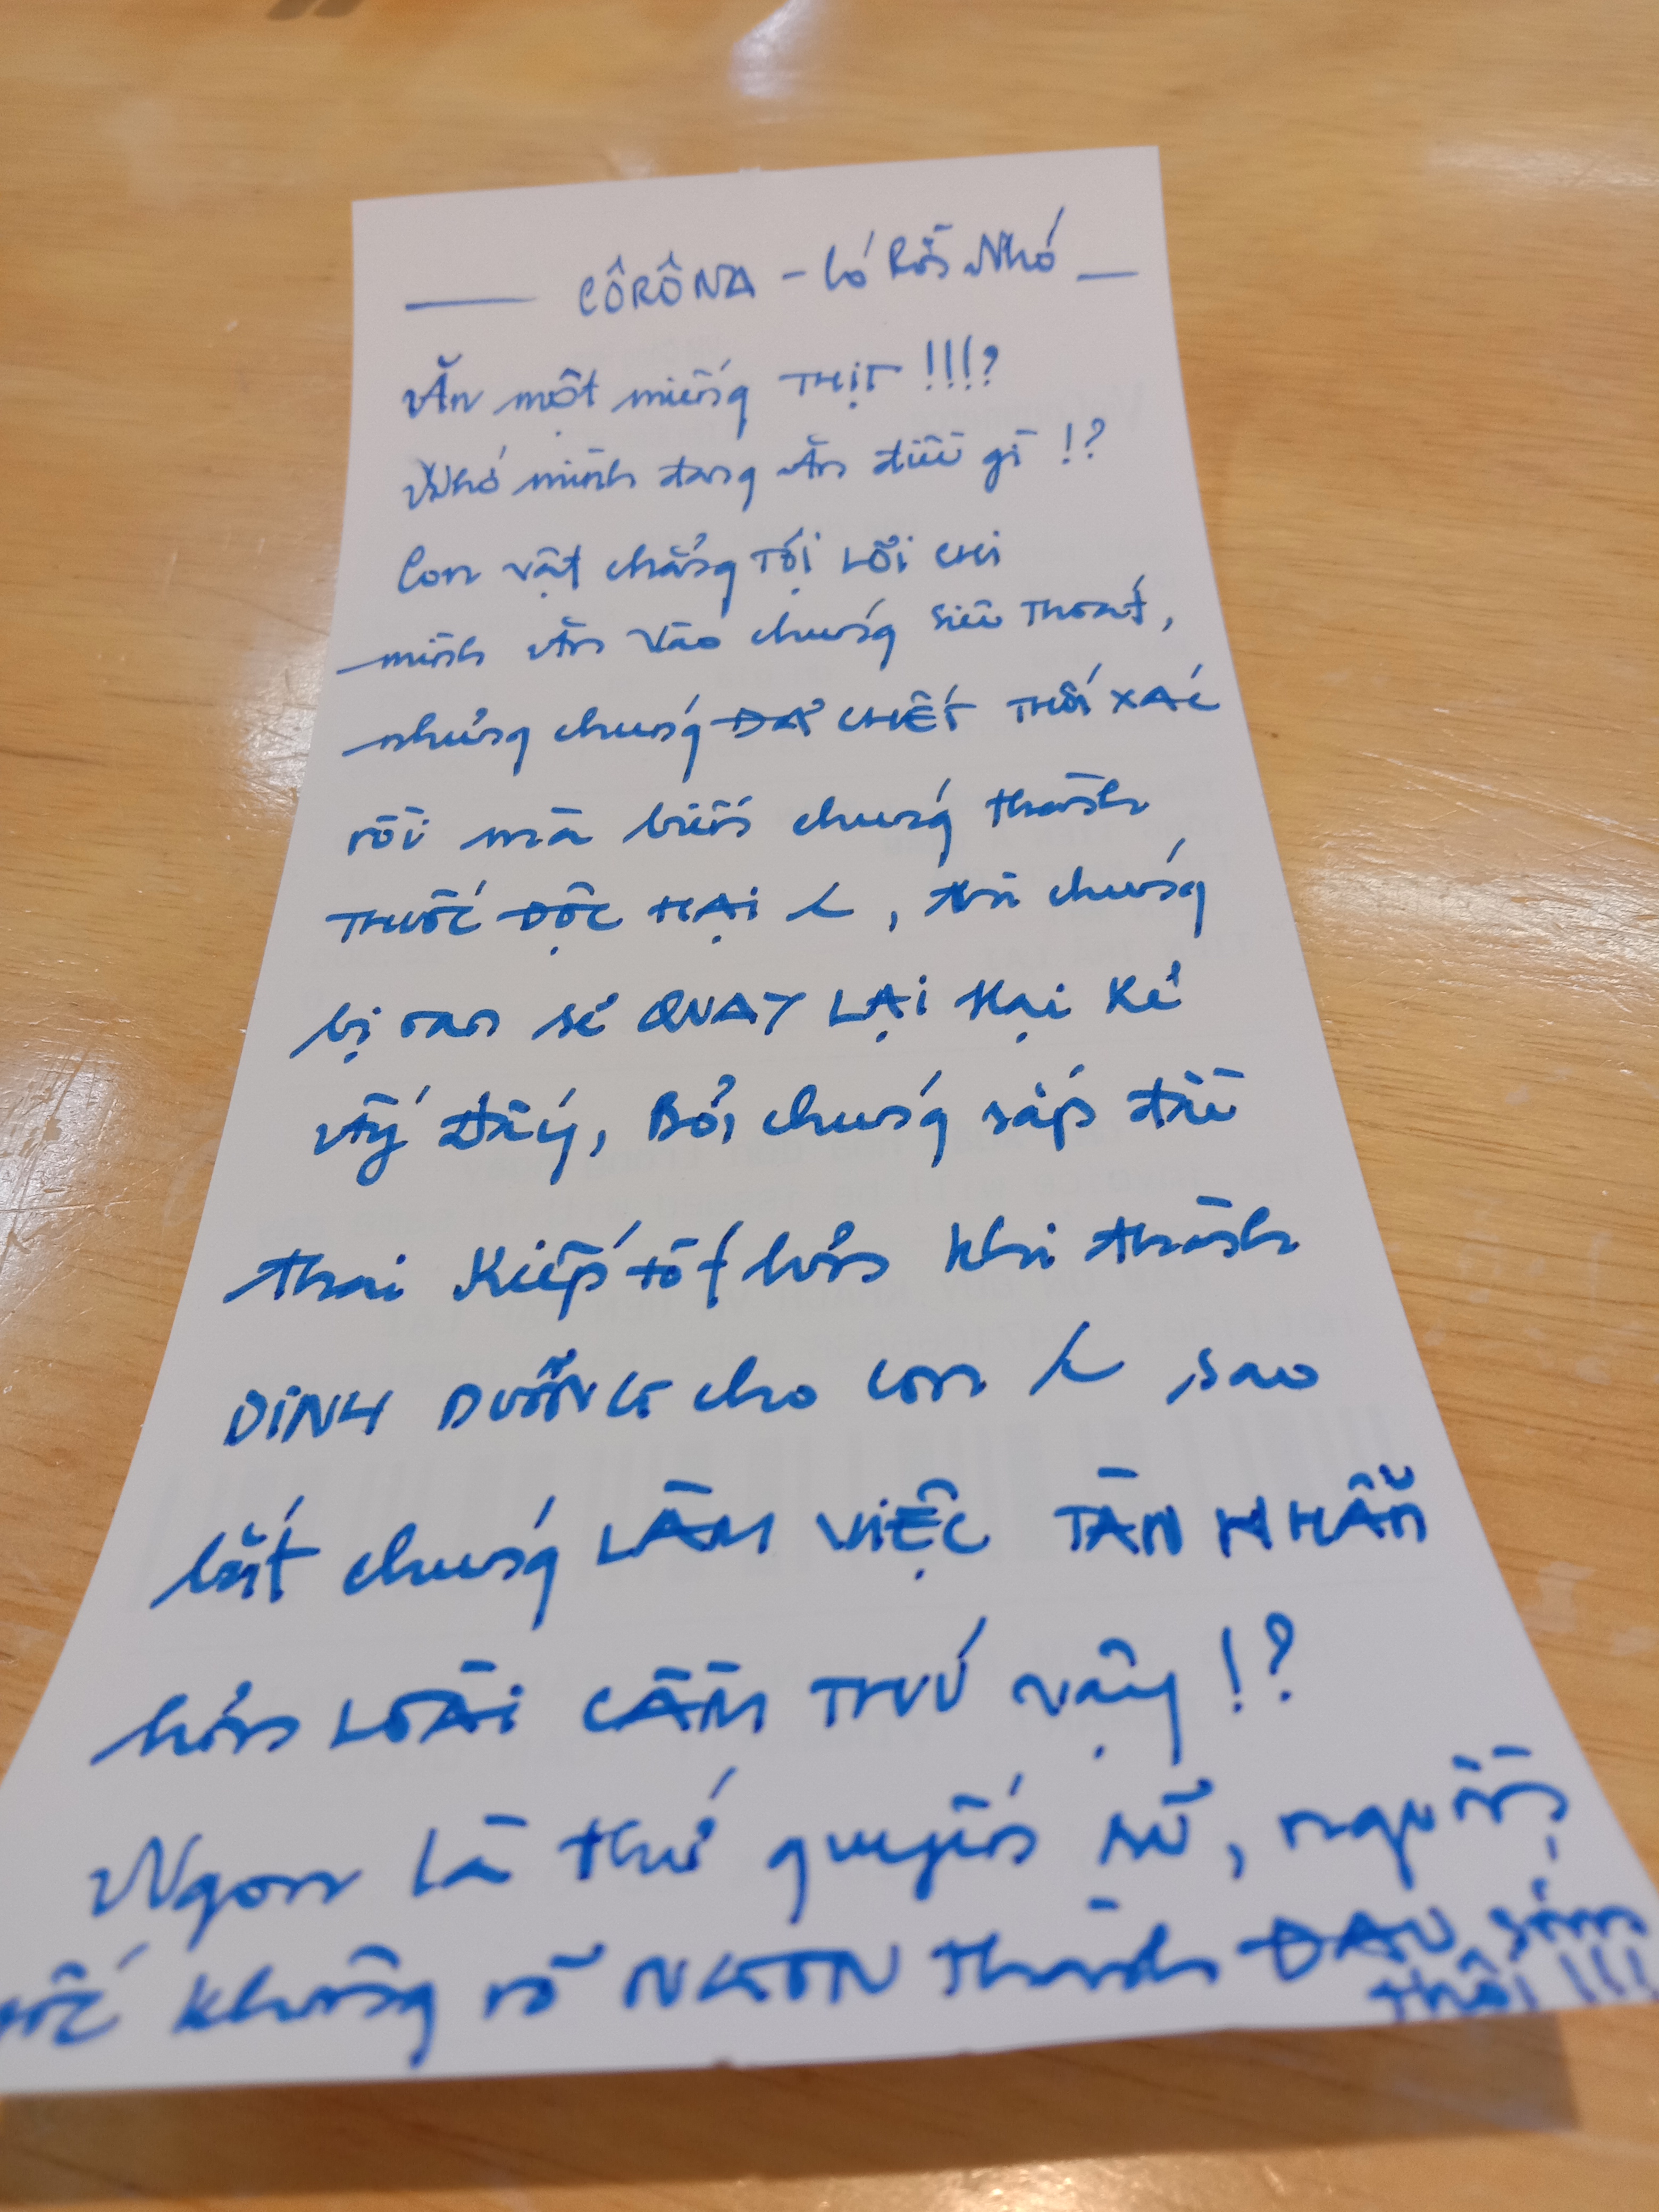 CÔRÔNA - Có Rồi Nhớ
Ăn một miếng THỊT !!!?
Nhớ mình đang ăn điều gì !?
Con vật chẳng TỘI LỖI CHI
mình ăn vào chúng siêu THOÁT,
nhưng chúng ĐÃ CHẾT THỐI XÁC
rồi mà biến chúng thành
THUỐC ĐỘC HẠI, thì chúng
bị oan sẽ QUAY LẠI HẠI KẺ
ấy đấy, Bởi chúng sắp đầu
thai Kiếp tốt hơn khi thành
DINH DƯỠNG cho con sao
bắt chúng LÀM VIỆC TÀN NHẪN
hơn LOÀI CẦM THÚ vậy !?
Ngon là thứ quyến rũ, người
không rõ NGON thành ĐAU sớm
thôi !!!